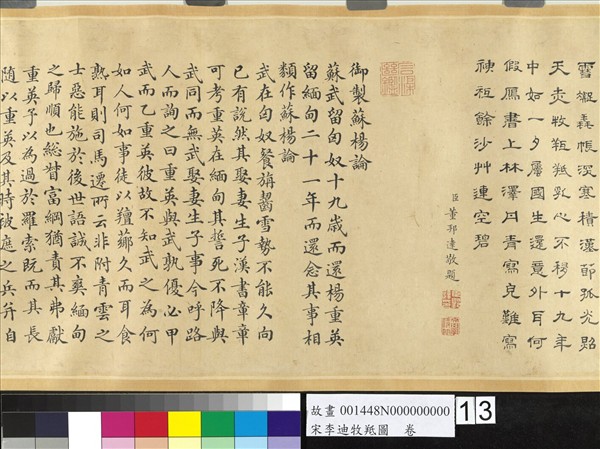 雪毳帳深寒積漢節孤光照
天牧羝羝乳心不移十九年
中如一夕屬國生還意外耳何
假雁書上林澤丹青寫皃難寫
神祗餘沙艸連空碧
臣董邦達敬題
御製蘇楊論
蘇武留匈奴十九歲而還楊重英
留緬甸二十一年而還念其事相
類作蘇楊論
武在匈奴餐旃齧雪勢不能久向
已有說然其娶妻生子漢書章章
可考重英在緬甸其誓死不降與
武同而無武娶妻生子事今呼路
人而詢之曰重英與武孰優必甲
武而乙重英彼故不知武之為何
如人何如事徒以羶薌久而耳食
熟耳則司馬遷所云非附青雲之
士惡能施於後世語誠不爽緬甸
之歸順也總督富綱猶責其弗獻
重英予以為過於羅索既而其長
隨以重英及其時被之兵并自
故畫 001448N000000000
宋李迪牧羝圖 卷
13